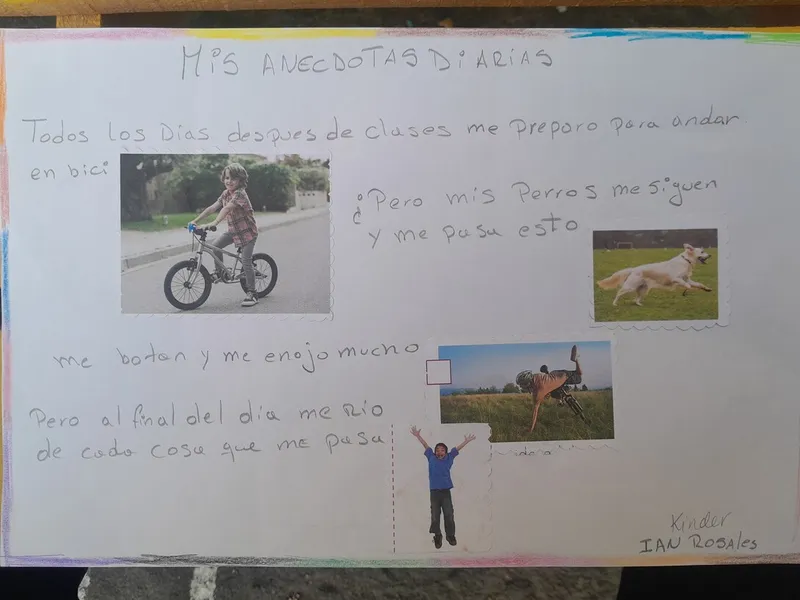 MiS ANECDOTAS DiARiAS
Todos los Días despues de clases me preparo para andar
en bici
¿Pero mis Perros me siguen
y me pasa esto
me botan y me enojo mucho
Pero al final del día me Río
de cada cosa que me pasa
Kinder
IAN ROSAles